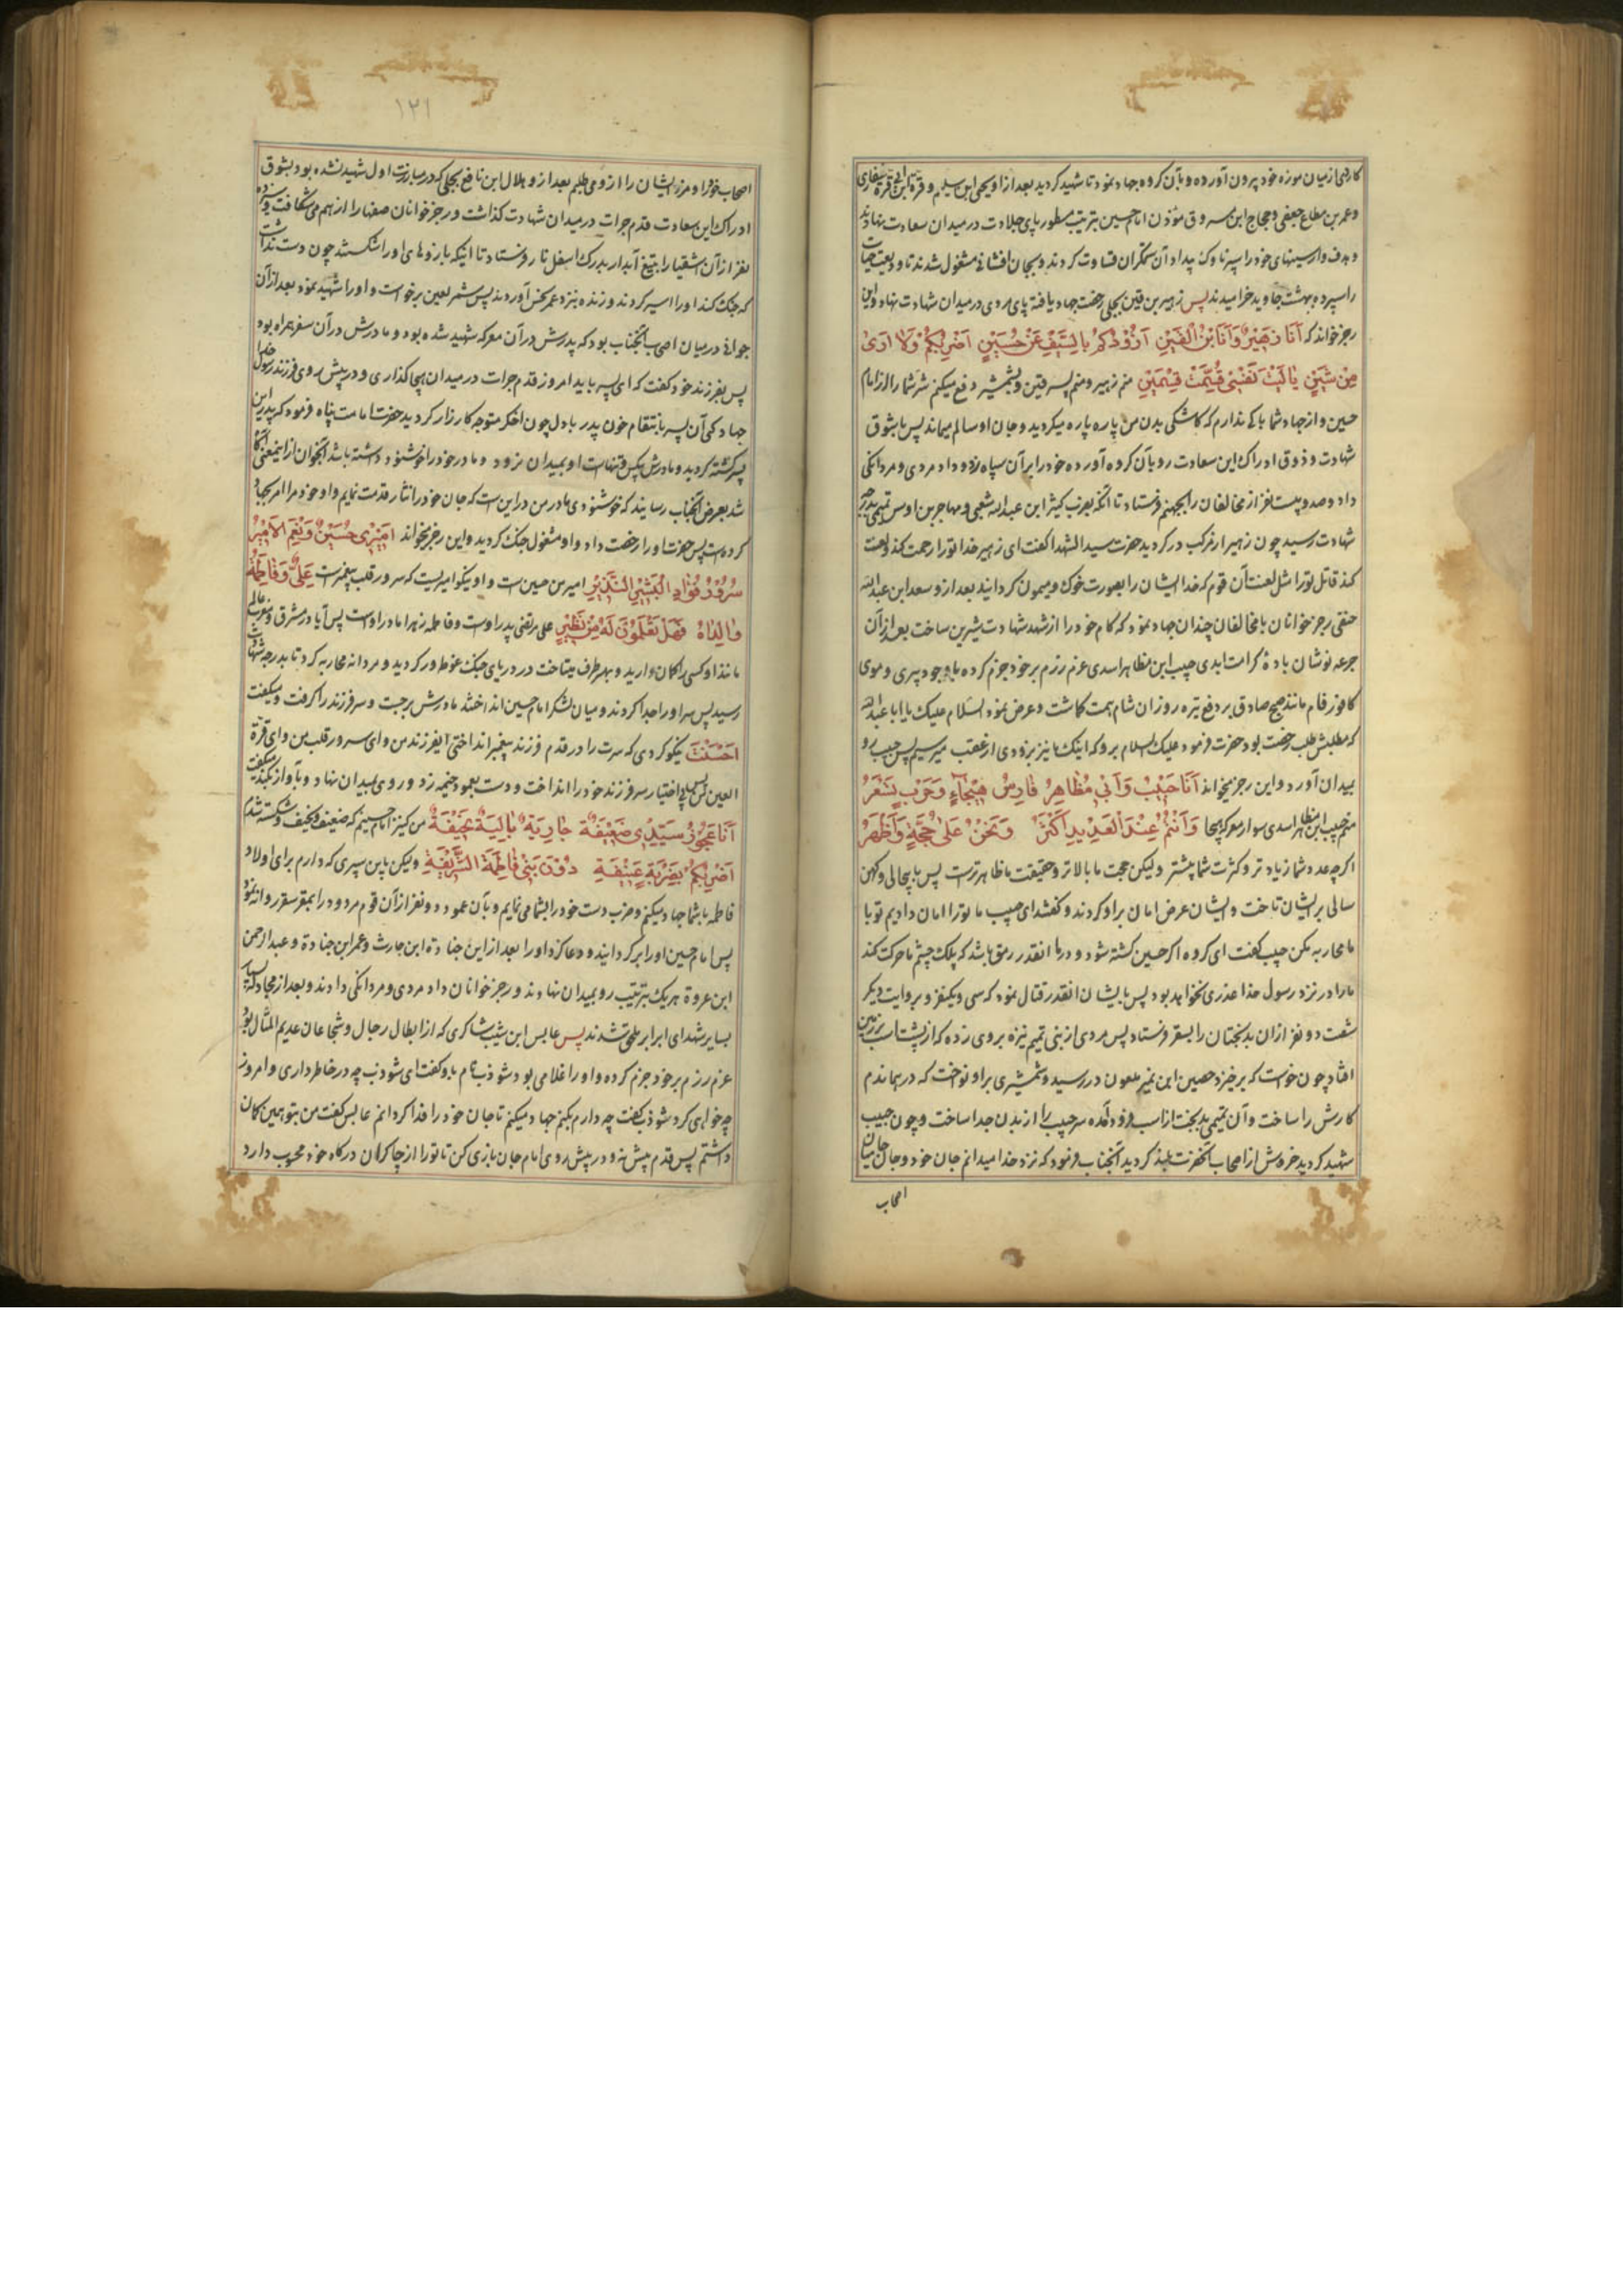 کاردی از میان موزه خود بیرون آورده و بآن کروه جهاد نمود تا شهید کردید بعد از او یحیی ابن سلیم و قرة ابن ابی قره غفاری
و عمر بن مطاع جعفی و حجاج ابن مسروق مؤذن امام حسین بترتیب مسطور پای جلادت در میدان سعادت نهادند
و هدف وار سینهای خود را سپر ناوک بیداد آن ستمکران قساوت کردند و بجان افشانی مشغول شدند تا ودیعت حیات
را سپرده بهشت جاوید خرامیدند پس زهیر بن قین بجلی رخصت جهاد یافته پای مردی در میدان شهادت نهاد و این
رجز خواند که اَنَا زُهَیْرٌ وَاَنَا ابْنُ الْقَیْنِ اَزُوْدُکُمْ بِالسَّیْفِ عَنْ حُسَیْنٍ اَضْرِبُکُمْ وَلَا اَرَی
مِنْ شَیْنٍ یَا لَیْتَ نَفْسِیْ قُسِّمَتْ قِسْمَیْنِ منم زهیر و منم پسر قین و بشمشیر دفع میکنم شر شما را از امام
حسین و از جهاد شما باکی ندارم که کاشکی بدن من پاره پاره میکردید و جان او سالم میماند پس با شوق
شهادت و ذوق ادراک این سعادت رو بآن کروه آورده خود را بر آن سپاه زد و داد مردی و مردانکی
داد و صد و بیست نفر از مخالفان را بجهنم فرستاد تا آنکه بضرب کثیر ابن عبدالله شعبی و مهاجر بن اوس تمیمی بدرجه
شهادت رسید چون زهیر از مرکب در کردید حضرت سید الشهدا گفت ای زهیر خدا تو را رحمت کند و لعنت
کند قاتل تو را مثل لعنت آن قوم که خدا ایشان را بصورت خوک و میمون کردانید بعد از و سعد ابن عبدالله
حنفی رجز خوانان با مخالفان چندان جهاد نمود که کام خود را از شهد شهادت شیرین ساخت بعد از آن
جرعه نوشان بادهٔ کرامت ابدی حبیب ابن مظاهر اسدی عزم رزم بر خود جزم کرده با وجود پیری و موی
کافور فام مانند صبح صادق بر دفع تیره روزان شام همت کماشت و عرض نمود السلام علیک یا ابا عبدالله
که مطلبش طلب رخصت بود حضرت فرمود علیک السلام برو که اینک ما نیز بزودی از عقب میرسیم پس حبیب رو
بمیدان آورد و این رجز میخواند اَنَا حَبِیْبٌ وَاَبِیْ مُظَاهِرُ فَارِسُ هَیْجَاءٍ وَحَرْبٍ تَسْعَرُ
منم حبیب ابن مظاهر اسدی سوار معرکه هیجا وَاَنْتُمْ عِنْدَ الْعَدِیْدِ اَکْثَرُ وَنَحْنُ عَلَی حُجَّةٍ وَاَظْهَرُ
اکر چه عدد شما زیاد تر و کثرت شما بیشتر ولیکن حجت ما بالاتر و حقیقت ما ظاهر تر است پس با پیحالی و کهن
سالی بر ایشان تاخت و ایشان عرض امان بر او کردند و کفتند ای حبیب ما تو را امان دادیم تو با
ما محاربه مکن حبیب کفت ای کروه اکر حسین کشته شود و در ما انقدر رمق باشد که پلک چشم ما حرکت کند
ما را در نزد رسول خدا عذری نخواهد بود پس با ایشان انقدر قتال نمود که سی و یکنفر و بروایت دیکر
شصت دو نفر از ان بدبختان را بسقر فرستاد پس مردی از بنی تمیم نیزه بر وی زده که از پشت اسب بر زمین
افتاد چون خواست که بر خیزد حصین ابن نمیر ملعون در رسید و شمشیری بر او نواخت که در هماندم
کارش را ساخت و آن تمیمی بدبخت از اسب فرود آمده سر حبیب را از بدن جدا ساخت و چون حبیب
شهید کردید خروش از اصحاب آنحضرت بلند کردید آنجناب فرمود که نزد خدا میدانم جان خود و جان
اصحاب
۱۲۱
اصحاب خود را و مزد ایشان را از و می طلبم بعد از و هلال ابن نافع بجلی که در مبارزت اول شهید نشده بود بشوق
ادراک این سعادت قدم جرات در میدان شهادت کذاشت و رجز خوانان صفها را از هم می شکافت و سیزده
نفر از آن اشقیا را بتیغ آبدار بدرک اسفل نار فرستاد تا اینکه بازوهای او را شکستند چون دست نداشت
که جنک کند او را اسیر کردند و زنده بنزد عمر نحس آوردند پس شمر لعین برخواست و او را شهید نمود بعد از آن
جوانی در میان اصحاب آنجناب بود که پدرش در آن معرکه شهید شده بود و مادرش در آن سفر همراه بود
پس بفرزند خود کفت که ای پسر باید امروز قدم جرات در میدان هیجا کذاری و در پیش روی فرزند رسول خدا
جهاد کنی آن پسر بانتقام خون پدر با دل چون اخکر متوجه کارزار کردید حضرت امامت پناه فرمود که پدر این
پسر کشته کردید و مادرش بیکس و تنهاست او بمیدان نرود و مادر خود را خوشنود داشته باشد آنجوان از اینمعنی آکاه
شد بعرض آنجناب رسانید که خوشنودی مادر من در این است که جان خود را نثار قدمت نمایم و او خود مرا امر بجهاد
کرده است پس حضرت او را رخصت داد و او مشغول جنک کردید و این رجز میخواند اَمِیْرِیْ حُسَیْنٌ وَنِعْمَ الْاَمِیْرُ
سُرُوْرُ فُؤَادِ الْبَشِیْرِ النَّذِیْرِ امیر من حسین است و او نیکو امیریست که سرور قلب پیغمبر است عَلِیٌّ وَفَاطِمَةُ
وَالِدَاهُ فَهَلْ تَعْلَمُوْنَ لَهُ مِنْ نَظِیْرِ علی مرتضی پدر اوست و فاطمه زهرا مادر اوست پس آیا در مشرق و مغرب عالم
مانند او کسی را کمان دارید و بهر طرف میتاخت در دریای جنک غوطه ور کردید و مردانه محاربه کرد تا بدرجه شهادت
رسید پس سر او را جدا کردند و میان لشکر امام حسین انداختند مادرش برجست و سر فرزند را کرفت و میکفت
اَحْسَنْتَ نیکو کردی که سرت را در قدم فرزند پیغمبر انداختی ایفرزند من و ای سرور قلب من و ای قرة
العین من پس بی اختیار سر فرزند خود را انداخت و دست بعمود خیمه زد و روی بمیدان نهاد و بآواز بلند میکفت
اَنَا عَجُوْزُ سَیِّدِیْ ضَعِیْفَةٌ خَاوِیَةٌ بَالِیَةٌ نَحِیْفَةٌ من کنیز امام حسینم که ضعیف و نحیف و شکسته شدم
اَضْرِبُکُمْ بِضَرْبَةٍ عَنِیْفَةٍ دُوْنَ بَنِیْ فَاطِمَةَ الشَّرِیْفَةِ ولیکن باین پیری که دارم برای اولاد
فاطمه با شما جهاد میکنم و ضرب دست خود را بشما می نمایم و بآن عمود دو نفر از آن قوم مردود را بمقر سقر روانه نمود
پس امام حسین او را بر کردانید و دعا کرد او را بعد از این جناده ابن حارث و عمر ابن جناده و عبدالرحمن
ابن عروة هر یک بترتیب رو بمیدان نهادند و رجز خوانان داد مردی و مردانکی دادند و بعد از مجادله بسیار
بسایر شهدای ابرار ملحق شدند پس عابس ابن شبیب شاکری که از ابطال رجال و شجاعان عدیم المثال بود
عزم رزم بر خود جزم کرده و او را غلامی بود شوذب نام باو کفت ای شوذب چه در خاطر داری و امروز
چه خواهی کرد شوذب کفت چه دارم بکنم جهاد میکنم تا جان خود را فدا کردانم عابس کفت من بتو همین کمان
داشتم پس قدم پیش نه و در پیش روی امام جان بازی کن تا تو را از چاکران درکاه خود محسوب دارد